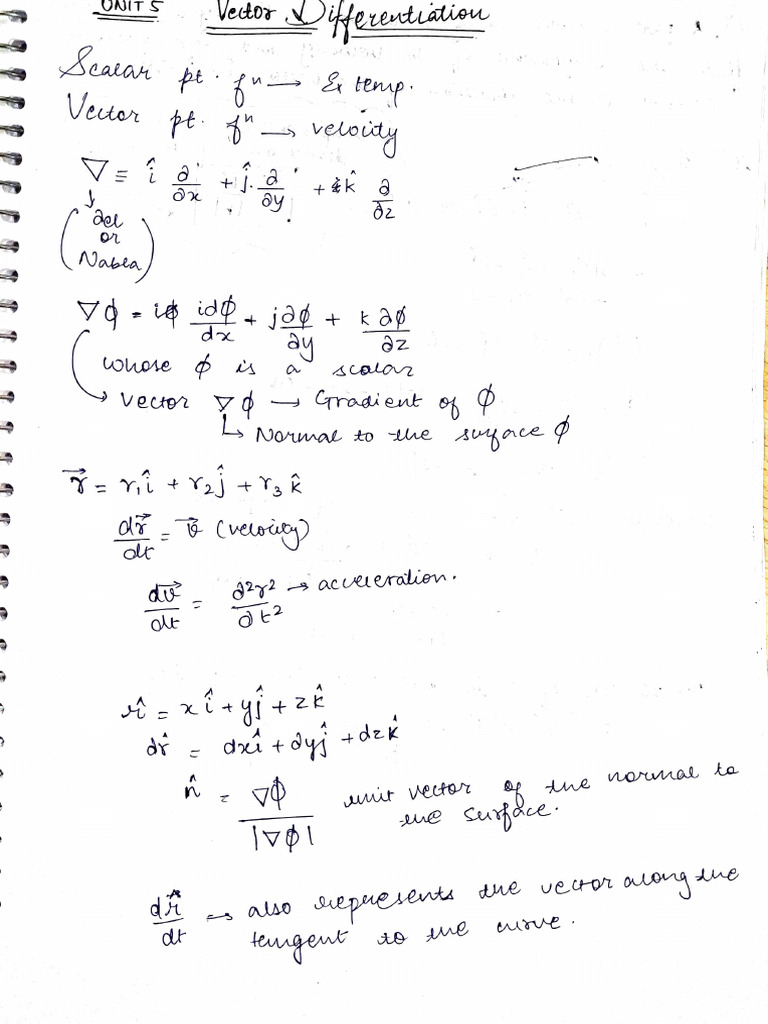 UNIT 5 Vector Differentiation
Scalar pt. fⁿ → Ex temp.
Vector pt. fⁿ → velocity
∇ ≡ î ∂/∂x + ĵ.∂/∂y + k̂ ∂/∂z
↓
(del
or
Nabla)
∇ϕ = idϕ/dx + j∂ϕ/∂y + k∂ϕ/∂z
whose ϕ is a scalar
→ vector ∇ϕ → Gradient of ϕ
↳ Normal to the surface ϕ
r⃗ = r₁î + r₂ĵ + r₃k̂
dr⃗/dt = v⃗ (velocity)
dv⃗/dt = ∂²r²/∂t² → acceleration.
r̂ = xî + yĵ + zk̂
dr̂ = dxî + ∂yĵ + dzk̂
n̂ = ∇ϕ/|∇ϕ| unit vector of the normal to
the surface.
dr⃗/dt → also represents the vector along the
tengent to the curve.